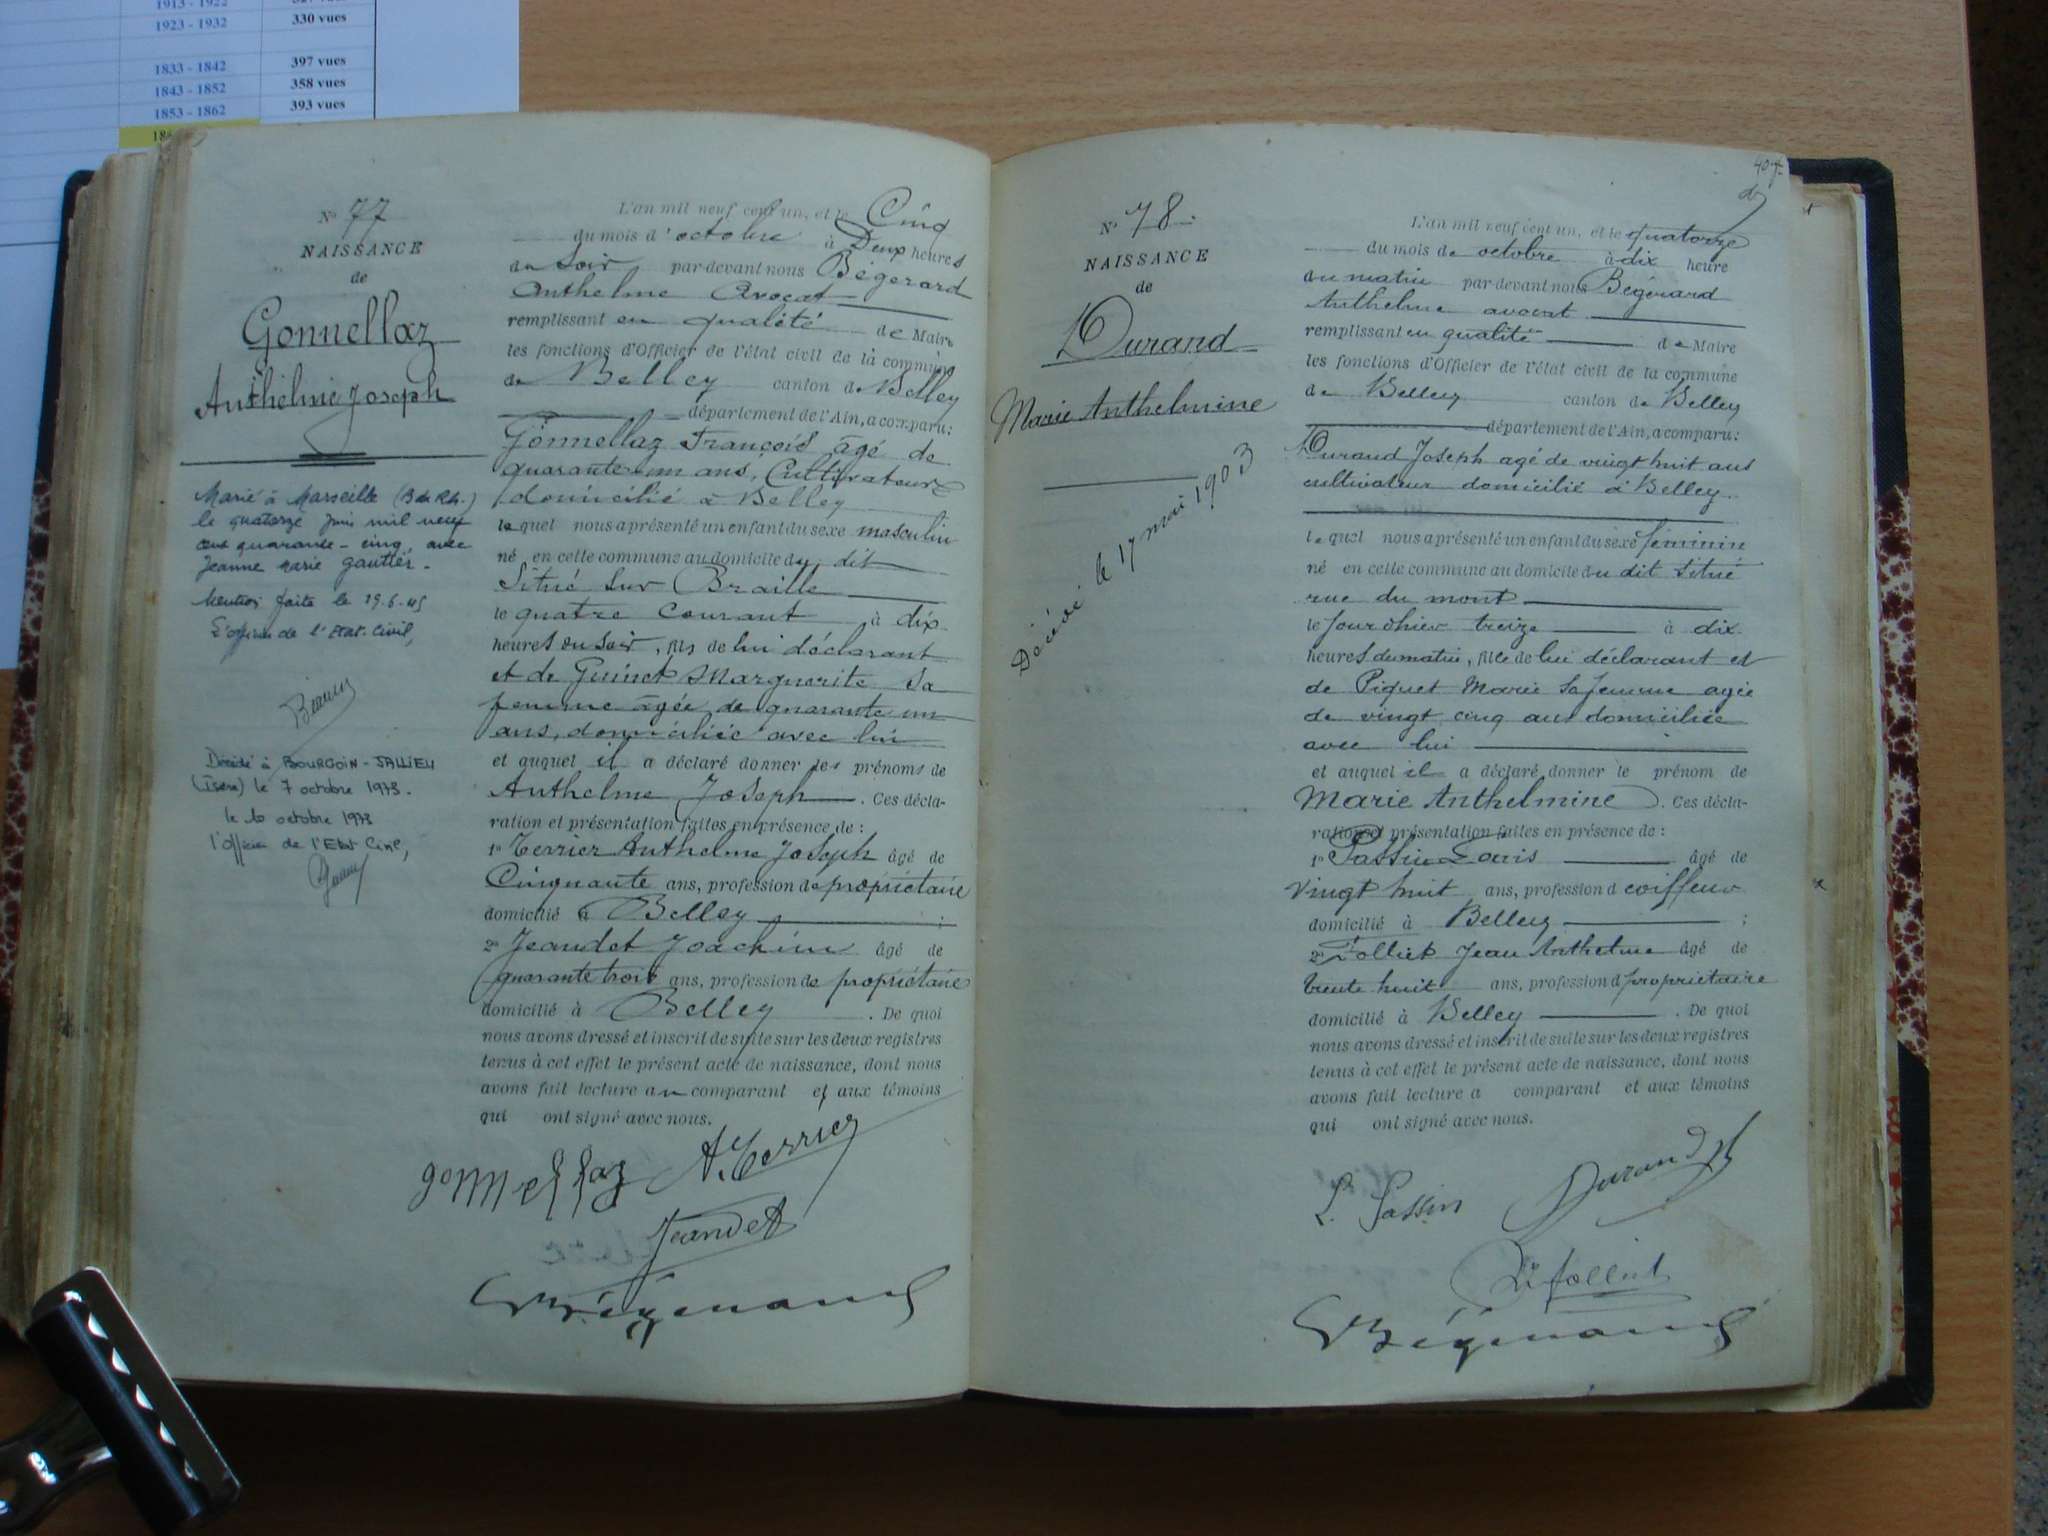 1913 - 1922
1923 - 1932 330 vues
1833 - 1842 397 vues
1843 - 1852 358 vues
1853 - 1862 393 vues
N° 77
NAISSANCE
de
Gonnellaz
Anthelme Joseph
Marié à Marseille (B du Rh.)
le quatorze juin mil neuf
cent quarante-cinq avec
Jeanne Marie Gautier.
Mention faite le 19.6.45
L'officier de l'Etat-Civil,
Décédé à BOURGOIN-JALLIEU
(Isère) le 7 octobre 1973.
le 10 octobre 1973
l'Officier de l'Etat Civil,
L'an mil neuf cent un, et le Cinq
du mois d'octobre à Deux heures
du soir par-devant nous Bégerard
Anthelme Avocat
remplissant en qualité de Maire
les fonctions d'Officier de l'état civil de la commune
de Belley canton de Belley
département de l'Ain, a comparu:
Gonnellaz François âgé de
quarante un ans, Cultivateur
domicilié à Belley
lequel nous a présenté un enfant du sexe masculin
né en cette commune au domicile du dit
Situé Sur Braille
le quatre courant à dix
heures du soir, fils de lui déclarant
et de Guinet Marguerite sa
femme âgée de quarante un
ans, domiciliée avec lui
et auquel il a déclaré donner les prénoms de
Anthelme Joseph. Ces décla-
ration et présentation faites en présence de :
1° Terrier Anthelme Joseph âgé de
Cinquante ans, profession de propriétaire
domicilié à Belley ;
2° Jeandet Joachim âgé de
quarante trois ans, profession de propriétaire
domicilié à Belley. De quoi
nous avons dressé et inscrit de suite sur les deux registres
tenus à cet effet le présent acte de naissance, dont nous
avons fait lecture au comparant et aux témoins
qui ont signé avec nous.
gonnellaz A. Terrier
Jeandet
Bégerard
407
N° 78
NAISSANCE
de
Durand
Marie Anthelmine
Décédé le 17 mai 1903
L'an mil neuf cent un, et le quatorze
du mois de octobre à dix heure
du matin par-devant nous Bégerard
Anthelme avocat
remplissant en qualité de Maire
les fonctions d'Officier de l'état civil de la commune
de Belley canton de Belley
département de l'Ain, a comparu:
Durand Joseph agé de vingt huit ans
cultivateur domicilié à Belley
lequel nous a présenté un enfant du sexe féminin
né en cette commune au domicile du dit situé
rue du mont
le jour d'hier treize à dix
heures du matin, fille de lui déclarant et
de Piquet Marie sa femme agée
de vingt cinq ans domiciliée
avec lui
et auquel il a déclaré donner le prénom de
Marie Anthelmine. Ces décla-
ration et présentation faites en présence de :
1° Passin Louis âgé de
vingt huit ans, profession d coiffeur
domicilié à Belley ;
2° Folliet Jean Anthelme âgé de
trente huit ans, profession d propriétaire
domicilié à Belley. De quoi
nous avons dressé et inscrit de suite sur les deux registres
tenus à cet effet le présent acte de naissance, dont nous
avons fait lecture a comparant et aux témoins
qui ont signé avec nous.
L. Passin Durand
folliet
Bégerard